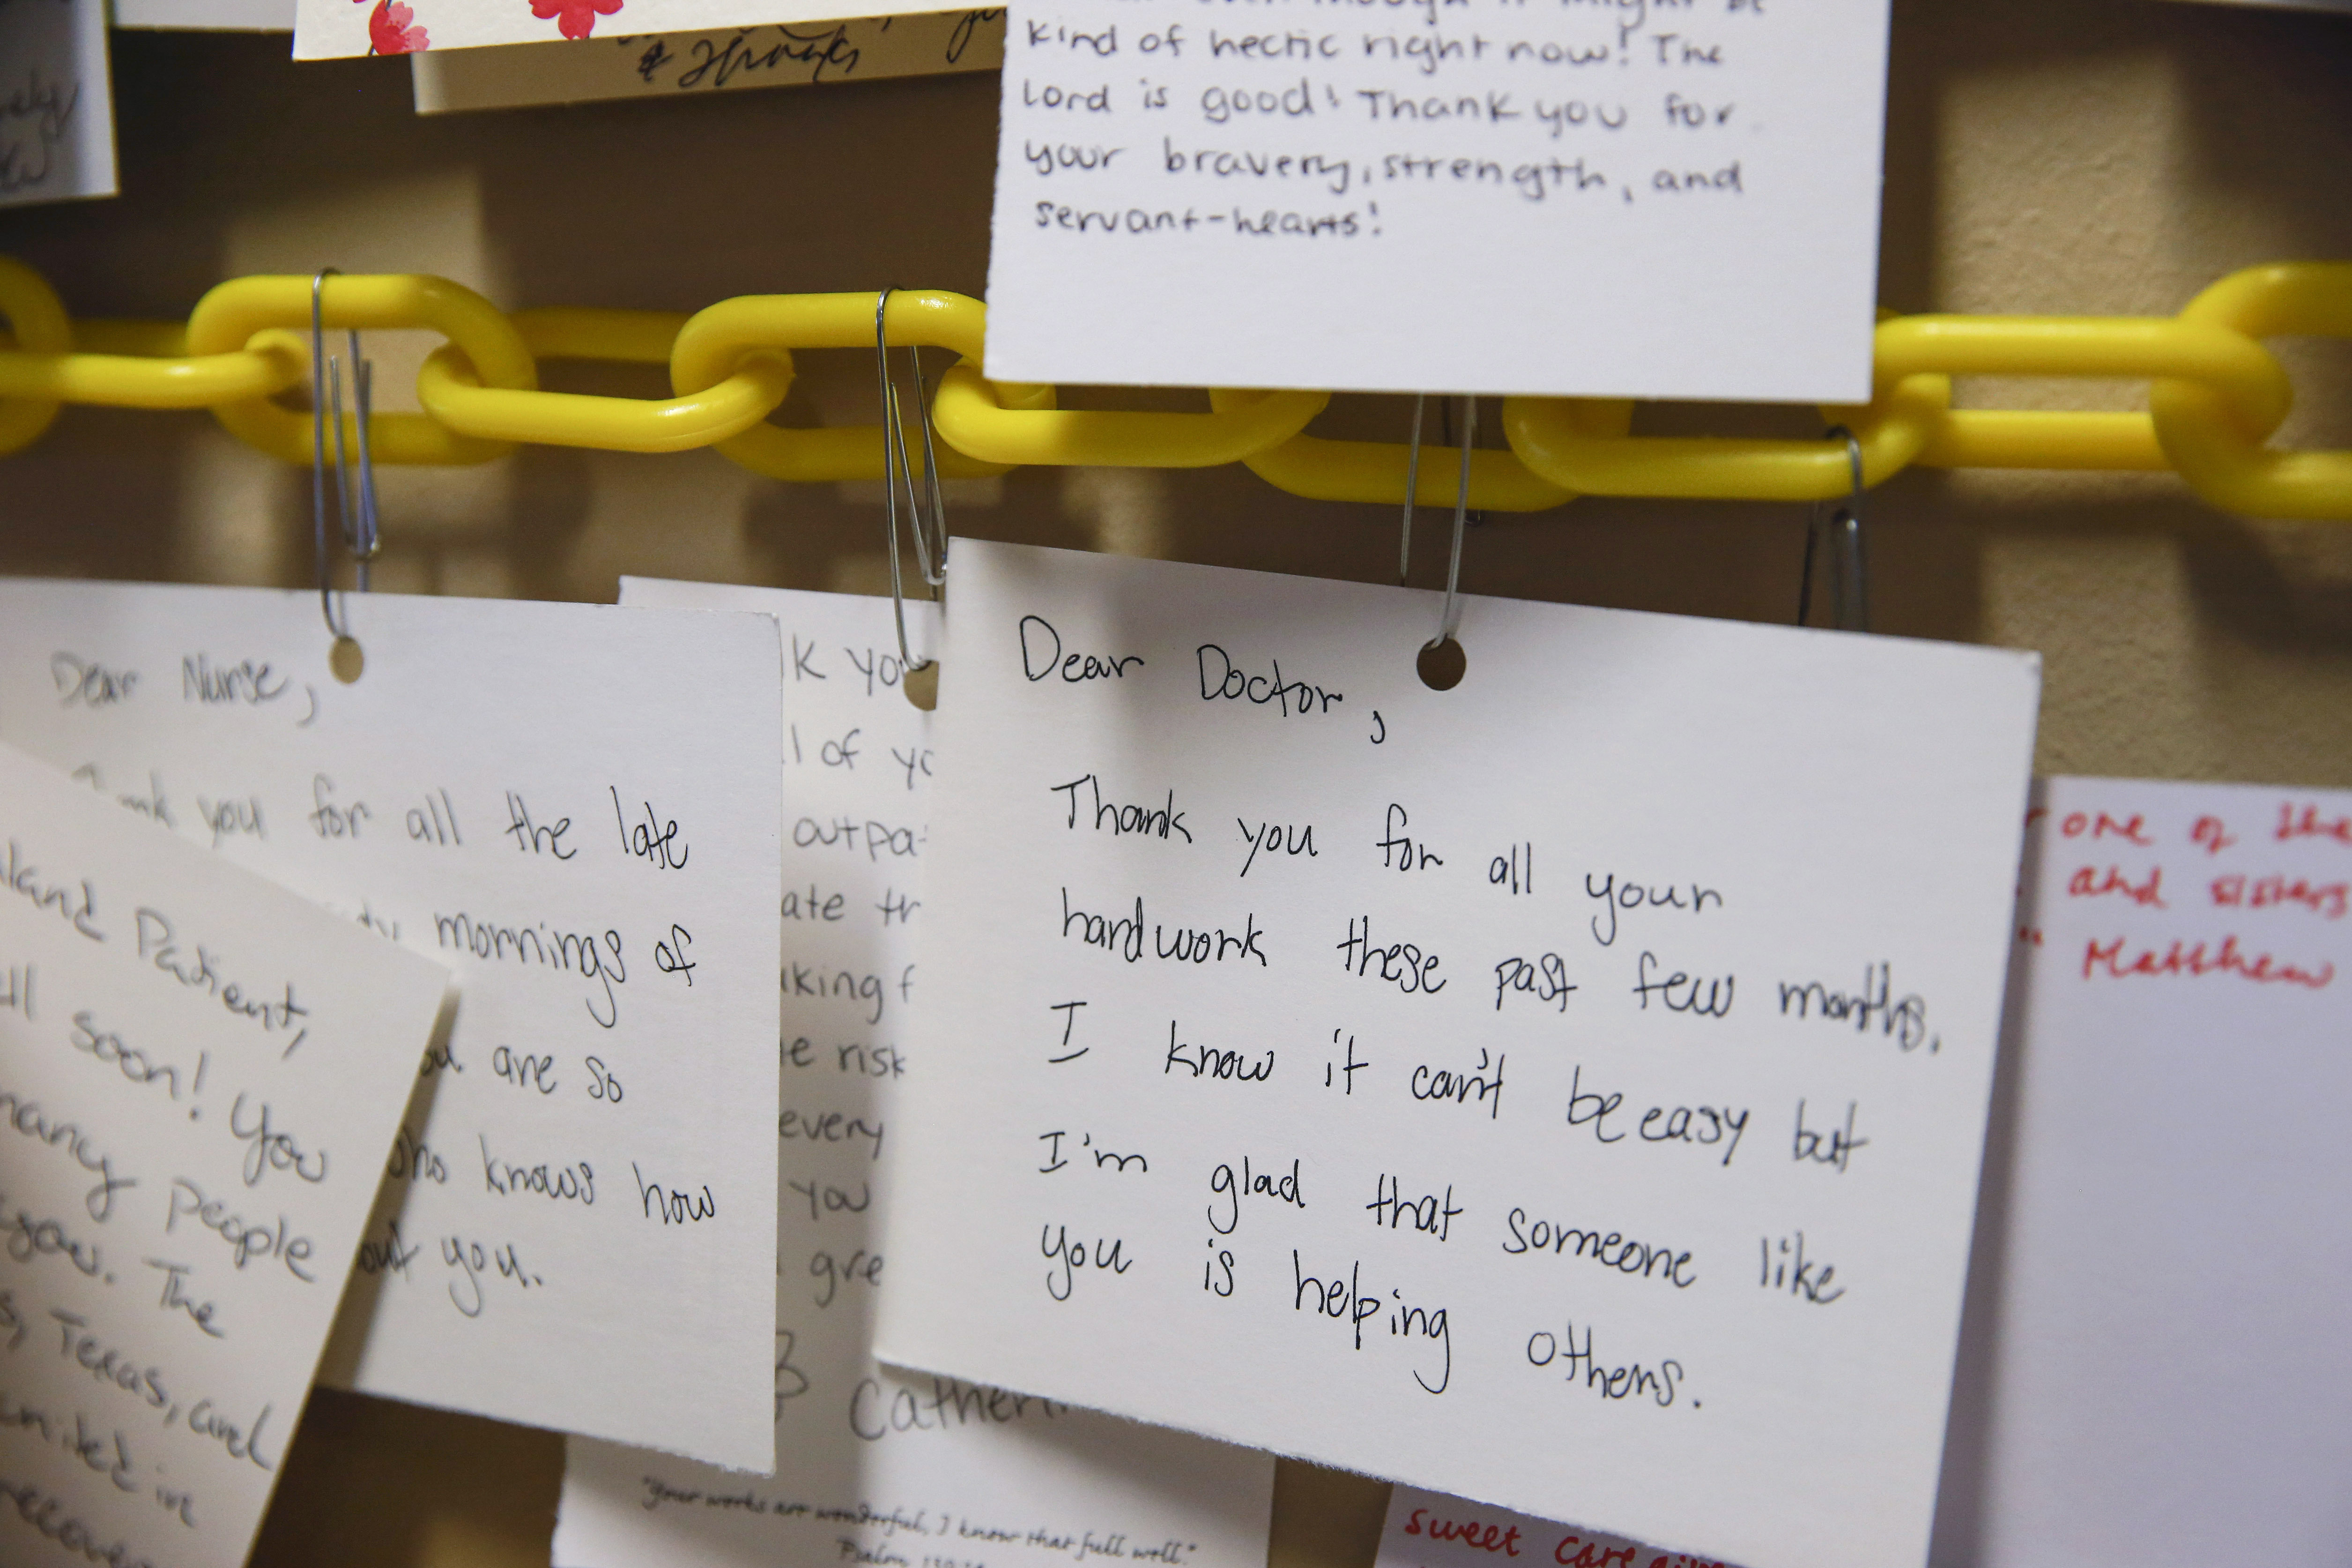 & Thanks
kind of hectic right now! The
Lord is good! Thank you for
your bravery, strength, and
servant-hearts!
Dear Nurse,
you for all the late
mornings of
are so
knows how
you.
Patient,
soon! You
many people
you. The
Texas, and
united in
K you
l of yo
outpa-
ate tr
king f
risk
every
you
gre
Cather
"Your works are wonderful, I know that full well."
Psalm
Dear Doctor,
Thank you for all your
hardwork these past few months.
I know it can't be easy but
I'm glad that someone like
you is helping others.
one of the
and sisters
" Matthew
sweet care